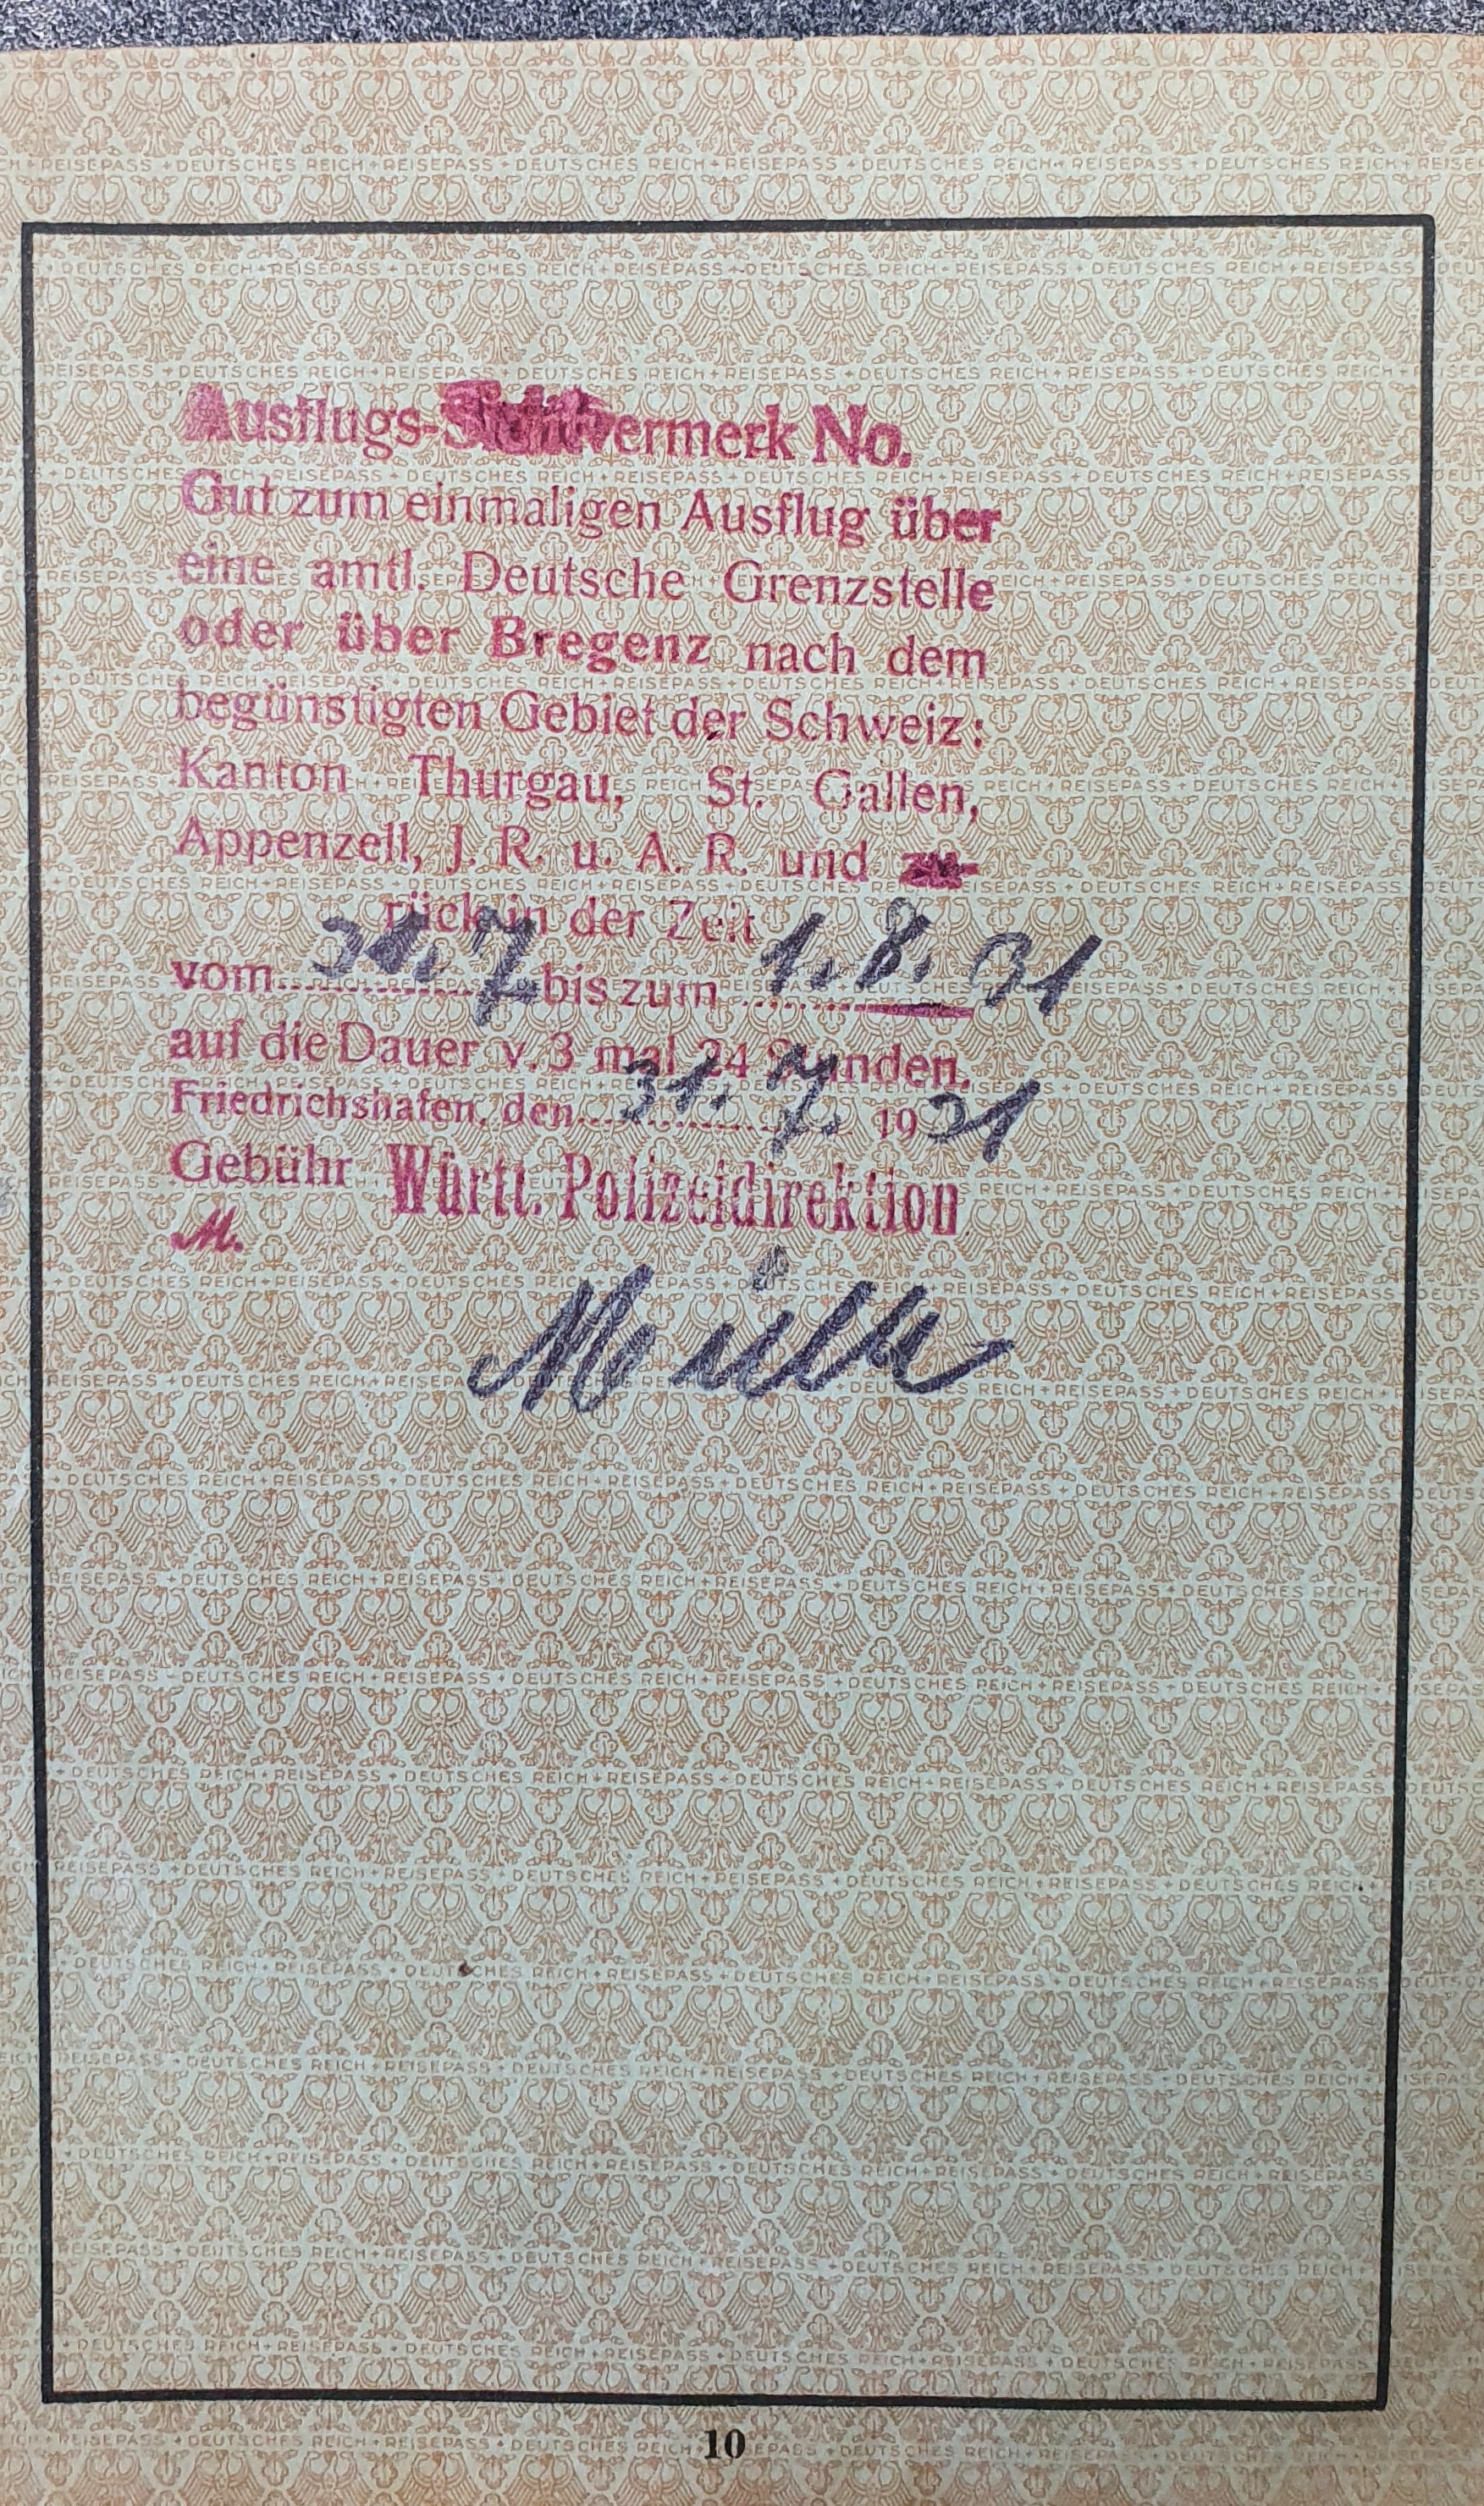 Ausflugs-Sichtvermerk No.
Gut zum einmaligen Ausflug über
eine amtl. Deutsche Grenzstelle
oder über Bregenz nach dem
begünstigten Gebiet der Schweiz:
Kanton Thurgau, St. Gallen,
Appenzell, J. R. u. A. R. und zu-
rück in der Zeit
vom 31. 7 bis zum 1. 8. 31
auf die Dauer v. 3 mal 24 Stunden.
Friedrichshafen, den 31. 7. 1931
Gebühr Württ. Polizeidirektion
M.
Müller
10